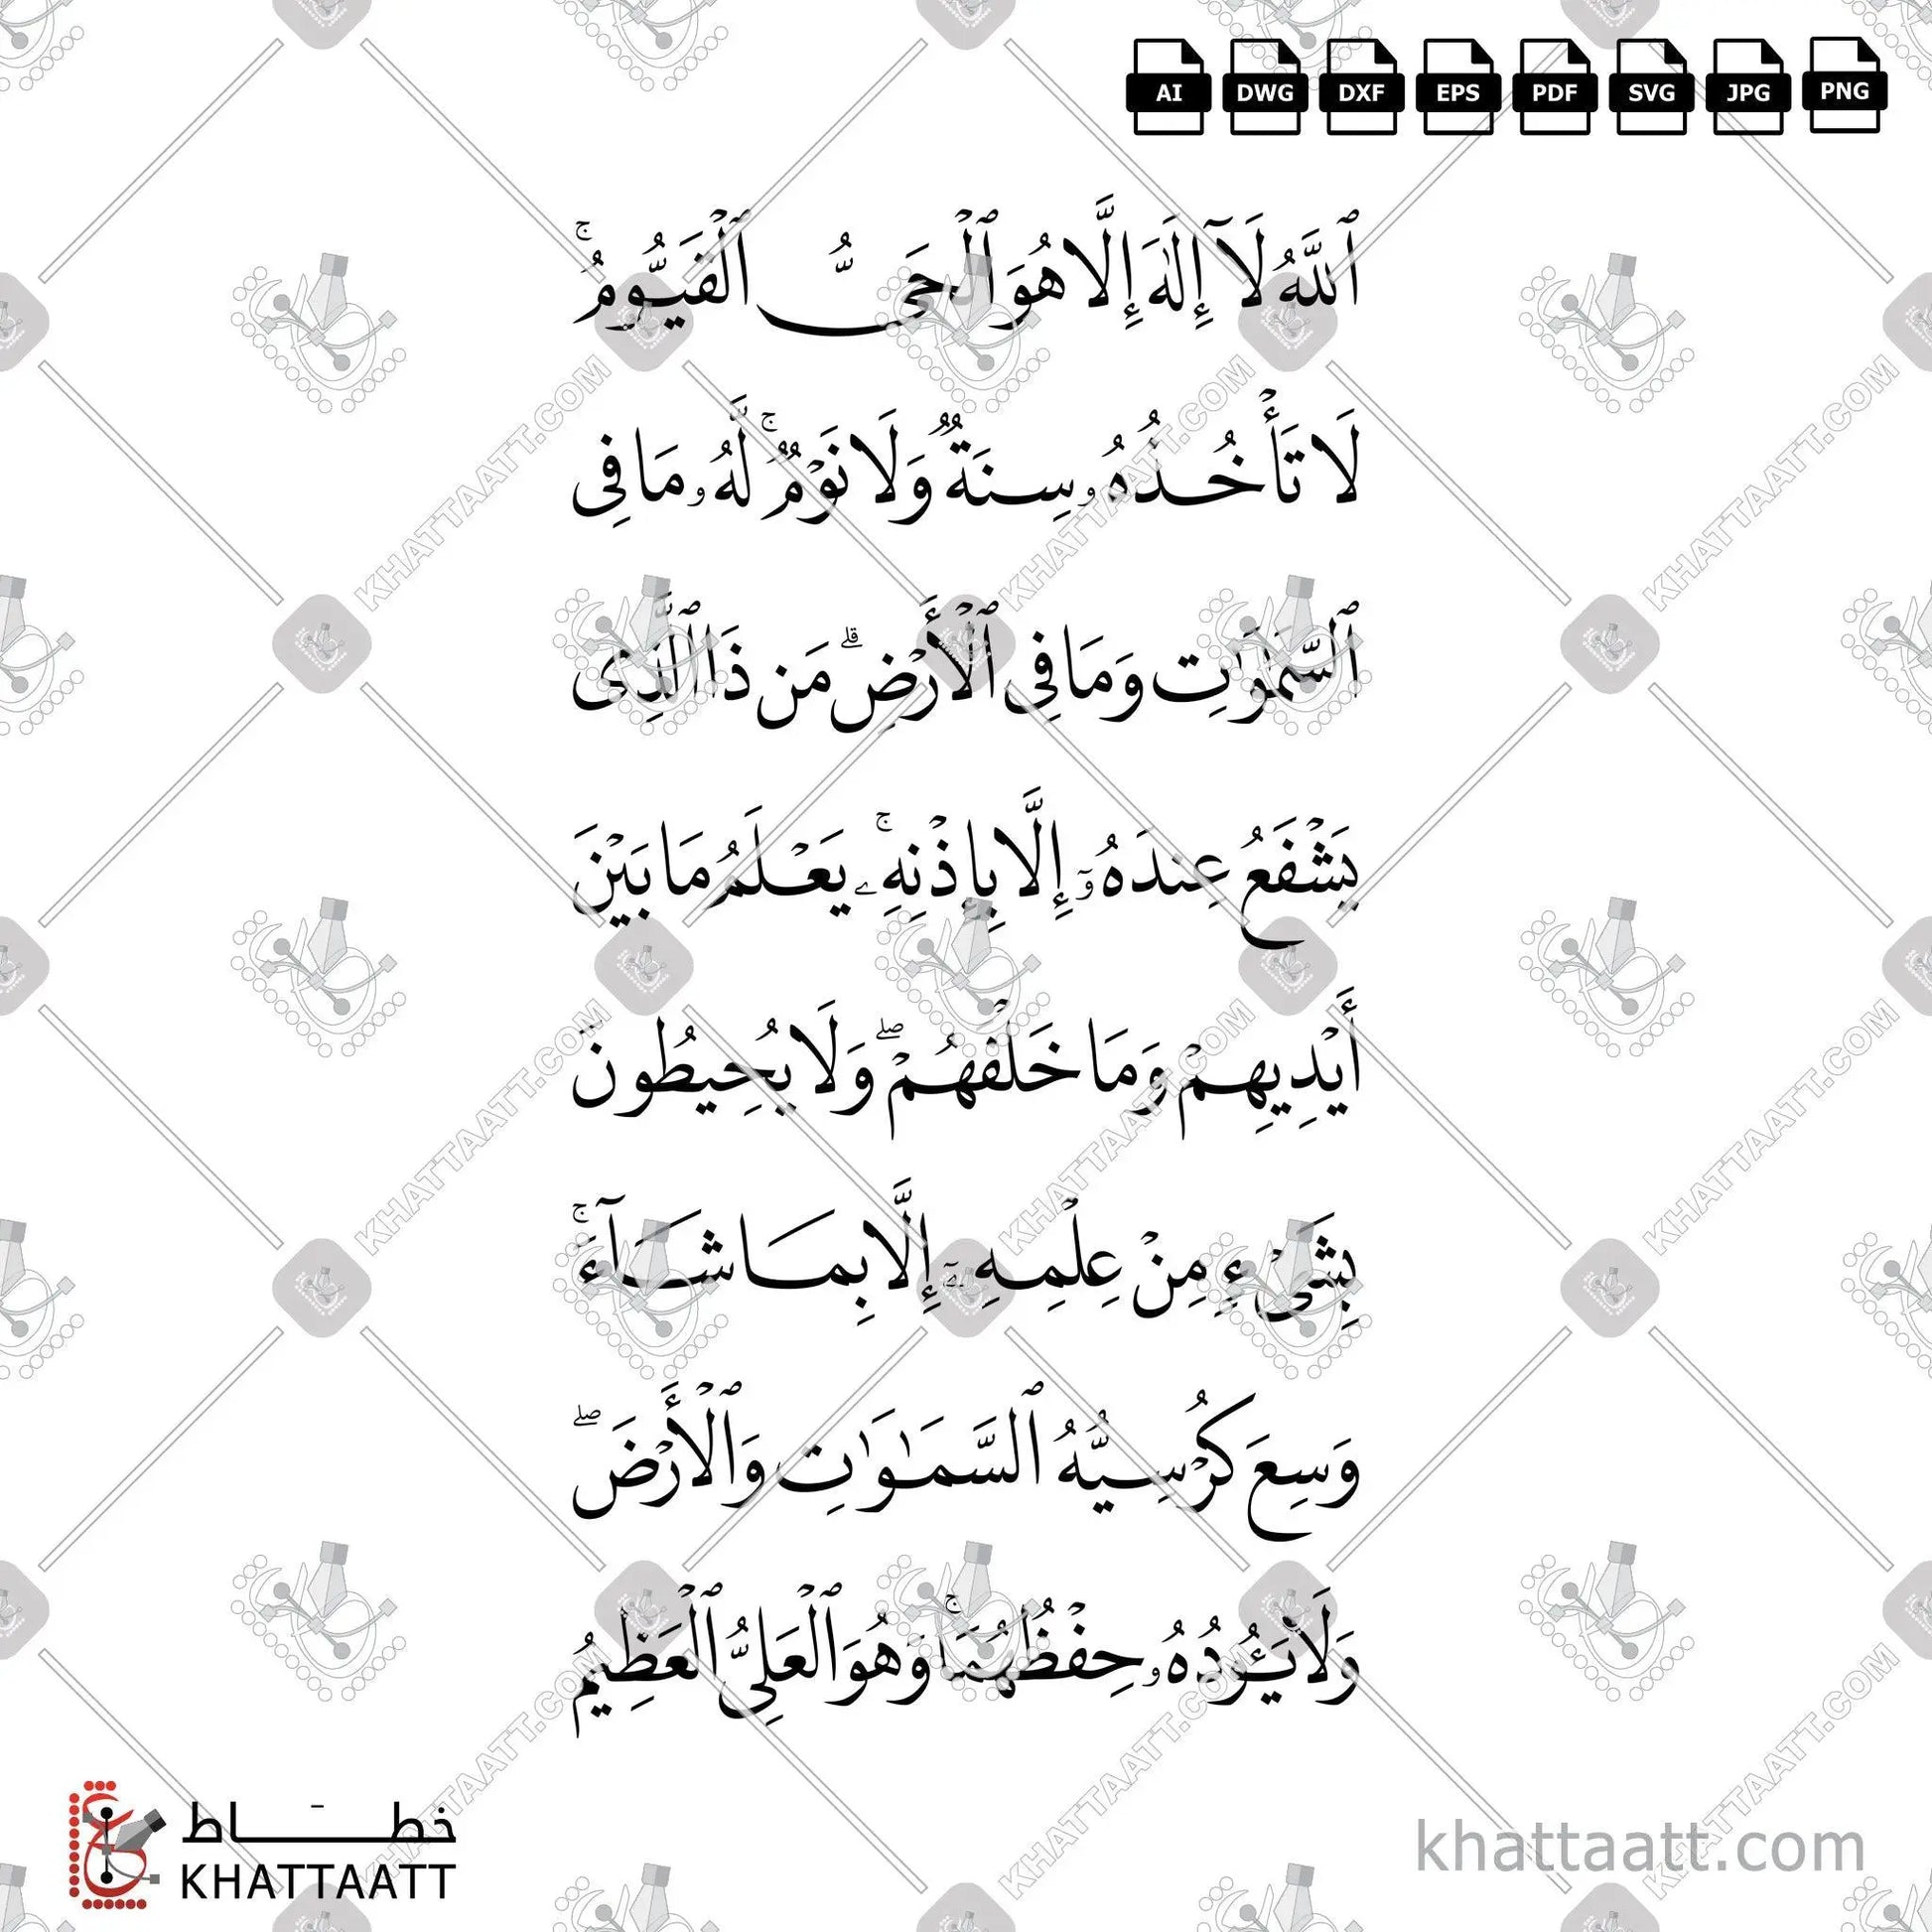 AI DWG DXF EPS PDF SVG JPG PNG
ٱللَّهُ لَآ إِلَٰهَ إِلَّا هُوَ ٱلْحَىُّ ٱلْقَيُّومُ ۚ
لَا تَأْخُذُهُۥ سِنَةٌ وَلَا نَوْمٌ ۚ لَّهُۥ مَا فِى
ٱلسَّمَٰوَٰتِ وَمَا فِى ٱلْأَرْضِ ۗ مَن ذَا ٱلَّذِى
يَشْفَعُ عِندَهُۥٓ إِلَّا بِإِذْنِهِۦ ۚ يَعْلَمُ مَا بَيْنَ
أَيْدِيهِمْ وَمَا خَلْفَهُمْ ۖ وَلَا يُحِيطُونَ
بِشَىْءٍ مِنْ عِلْمِهِۦٓ إِلَّا بِمَا شَآءَ ۚ
وَسِعَ كُرْسِيُّهُ ٱلسَّمَٰوَٰتِ وَٱلْأَرْضَ ۖ
وَلَا يَـُٔودُهُۥ حِفْظُهُمَا ۚ وَهُوَ ٱلْعَلِىُّ ٱلْعَظِيمُ
خطَّاط
KHATTAATT
khattaatt.com
KHATTAATT.COM